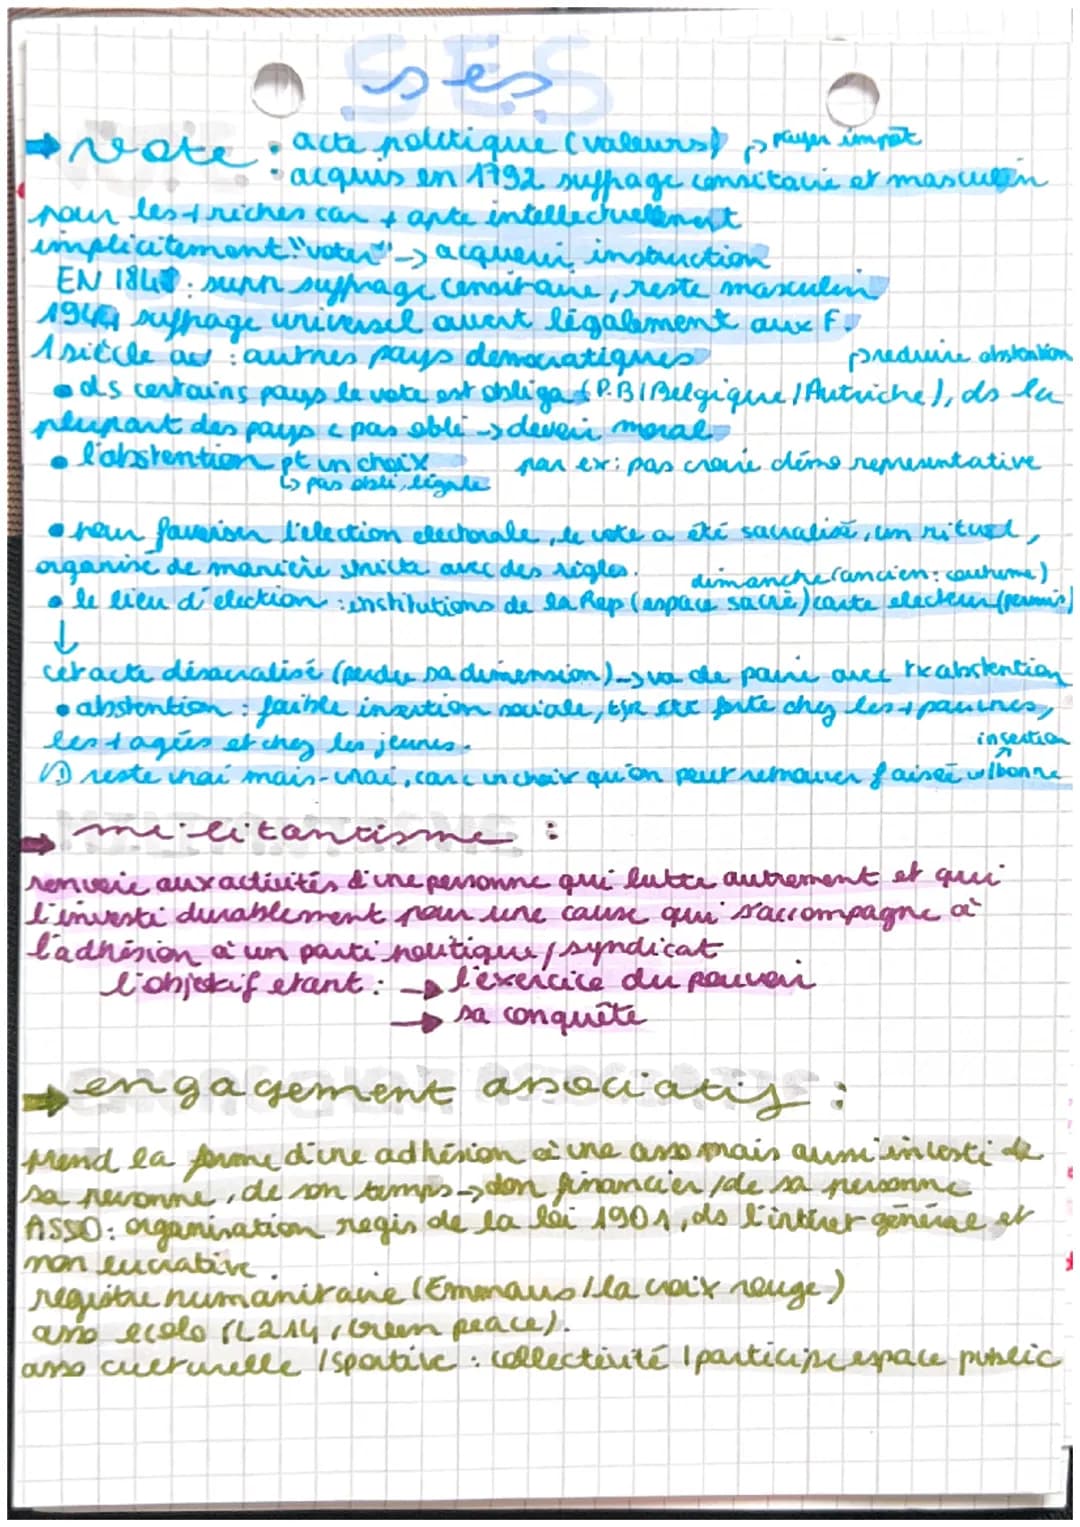 SES
→ vote : • acte politique (valeurs) ↳ payer impôt
• acquis en 1792 suffrage censitaire et masculin
pour les + riches car + apte intellectuellement
implicitement "voter" -> acquerir instruction
EN 1848 : supp suffrage censitaire, reste masculin
1944 suffrage universel ouvert légalement aux F.
1 siècle av : autres pays democratiques
réduire abstention
• ds certains pays le vote est obliga (P.B / Belgique / Autriche), ds la
plupart des pays c pas obli -> devoir moral
• l'abstention pt un choix par ex : pas croire démo representative
↳ pas obli, légale
• pour favoriser l'election electorale, le vote a été sacralisé, un rituel,
organisé de manière stricte avec des règles.
dimanche (ancien : coutume)
• le lieu d'election : institutions de la Rep (espace sacré) carte electeur (permis)
↓
cet acte désacralisé (perdu sa dimension) -> va de paire avec tx abstention
• abstention : faible insertion sociale, tjr forte chez les + pauvres,
les + agées et chez les jeunes.
insertion
⚠ reste vrai mais-vrai, car c un choix qu'on peut retrouver f aisée w/bonne
→ militantisme :
renvoie aux activités d'une personne qui lutte autrement et qui
l'investi durablement pour une cause qui s'accompagne à
l'adhésion à un parti politique / syndicat
l'objectif etant : → l'exercice du pouvoir
→ sa conquête
→ engagement associatif :
prend la forme d'une adhésion à une asso mais aussi investi de
sa personne, de son temps -> don financier / de sa personne
ASSO : organisation regis de la loi 1901, ds l'intéret général et
non lucrative.
registre humanitaire (Emmaus / la croix rouge)
asso ecolo (L214, Green peace).
asso culturelle / sportive : collectivité / participe espace public